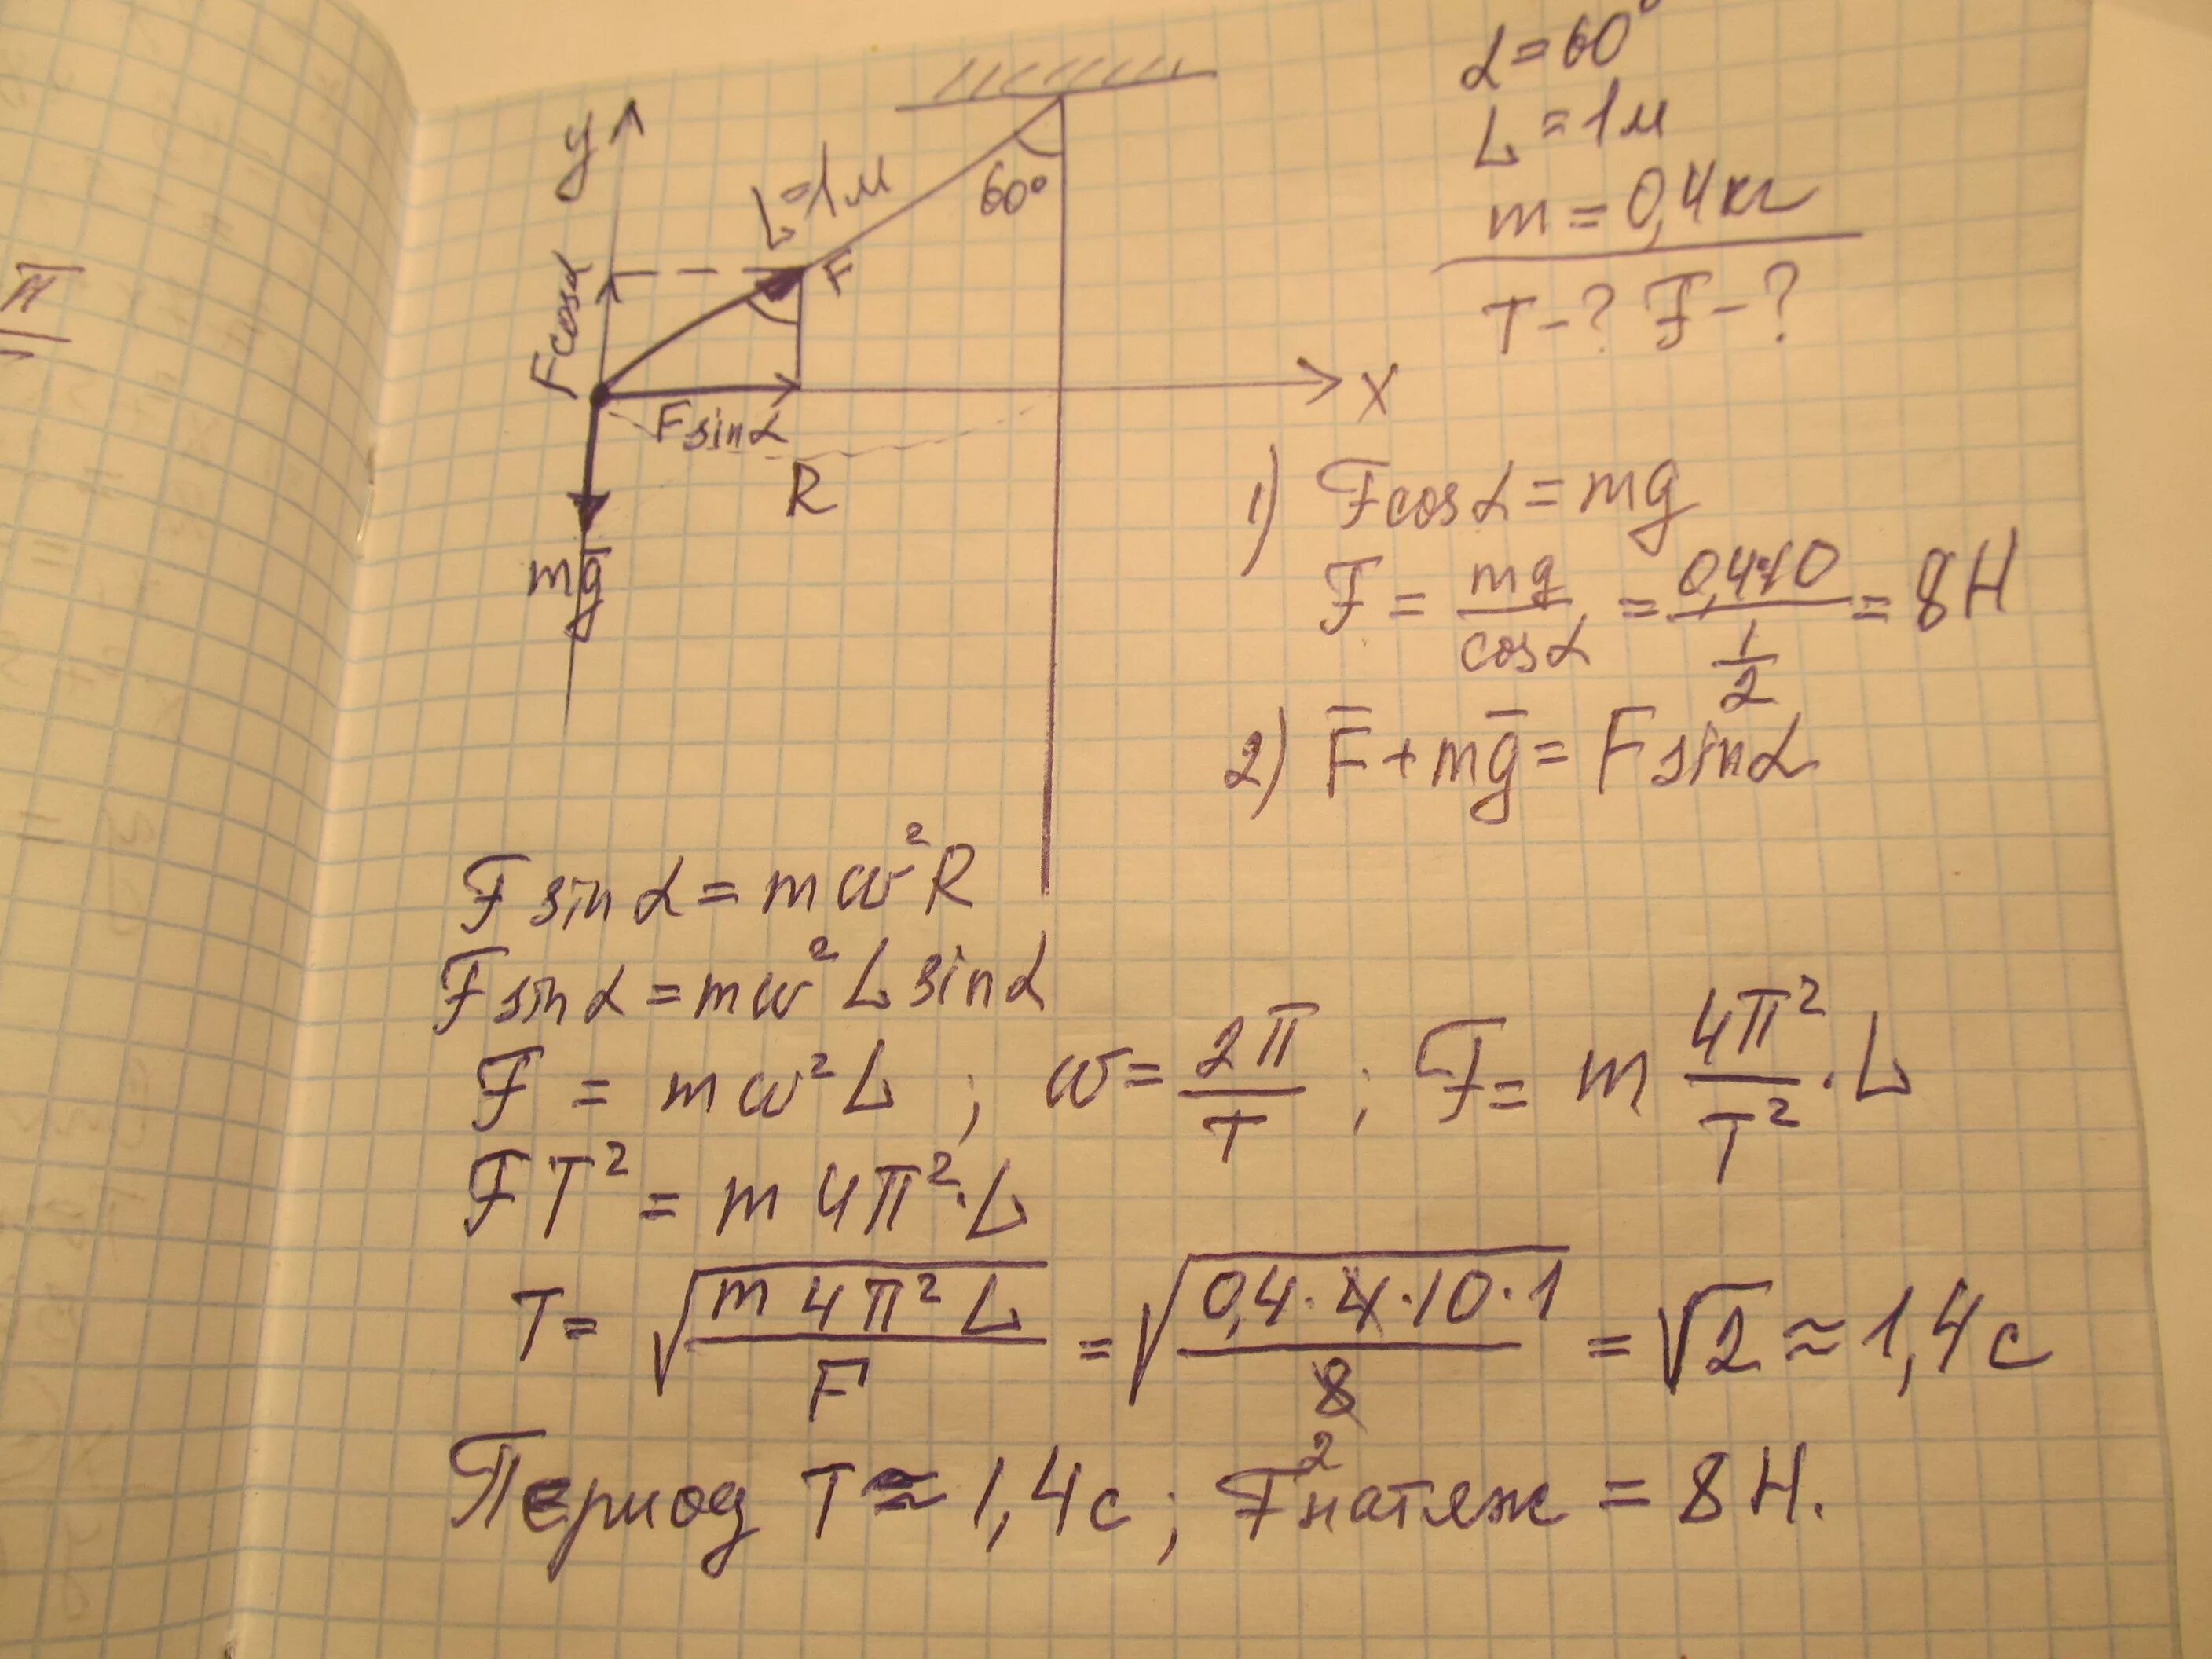 α = 60°
L = 1м
m = 0,4 кг
T - ? F - ?
y
L = 1м
60°
F
F cos α
F sin α
X
R
mg̅
π
1) F cos α = mg
F = mg / cos α = 0,4·10 / (1/2) = 8 Н
2) F̅ + mg̅ = F sin α
F sin α = m ω² R
F sin α = m ω² L sin α
F = m ω² L ; ω = 2π / T ; F = m 4π² / T² · L
F T² = m 4π² · L
T = √(m 4π² L / F) = √(0,4 · 4 · 10 · 1 / 8) = √2 ≈ 1,4 с
2
Период T ≈ 1,4 с ; F натяж = 8 Н.